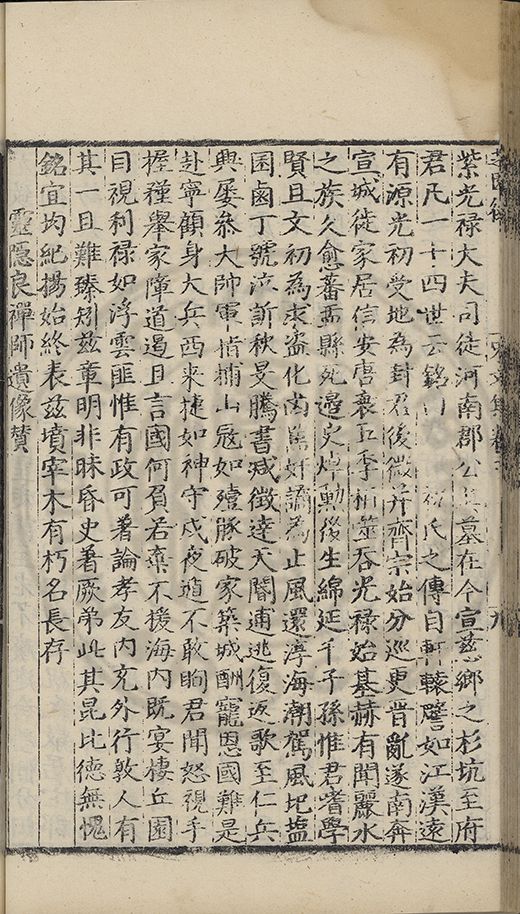 紫光禄大夫司徒河南郡公其墓在今宣慈鄉之杉坑至府
君凡一十四世云銘曰 氏之傳自軒轅譬如江漢遠
有源光初受地為封君後微并齊宗始分巡更晉亂遂南奔
宣城徙家居信安唐衰五季相噬吞光禄始基赫有聞麗水
之族久愈蕃 縣死邉史 勳後生綿延千子孫惟君嗜學
賢且文初為求盗化南 奸譎為止風還淳海潮駕風圯鹽
囷鹵丁號泣訴秋旻騰書减徵達天閽逋逃復返歌至仁兵
興屢叅大帥軍指捕山冦如殪豚破家築城酬寵恩國難是
赴寧顧身大兵西来捷如神守戍夜遁不敢眴君聞怒視手
握稑舉家障道遏且言國何負若棄不援海内既宴棲丘園
目視利禄如浮雲匪惟有政可著論孝友内充外行敦人有
其一且難臻矧兹葷明非昧昏史著厥弟此其昆比德無愧
銘宜均紀揚始終表兹墳宰木有朽名長存
靈隱良禪師遺像賛